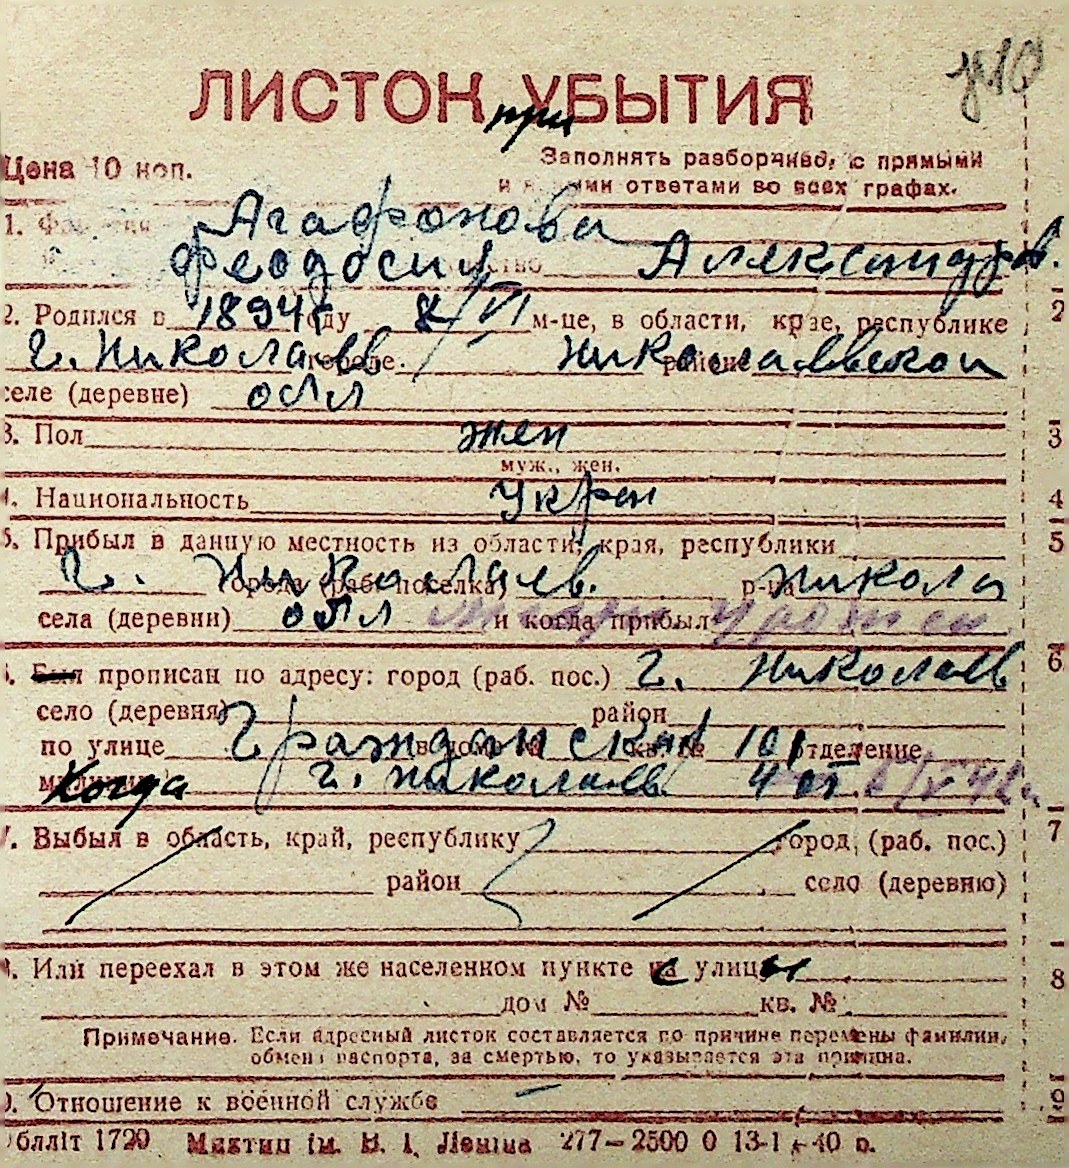 ЛИСТОК УБЫТИЯ
при
Цена 10 коп.
Заполнять разборчиво, с прямыми
и ответами во всех графах.
1. Агафонова
Феодосия Александров.
2. Родился в 1894 г году 8/VI м-це, в области, крае, республике 2
г. Николаев городе. районе Николаевской
селе (деревне) обл
3. Пол жен 3
муж., жен.
4. Национальность укра 4
5. Прибыл в данную местность из области, края, республики 5
г. Николаев. города (раб. поселка) р-на Никола
села (деревни) обл и когда прибыл урожен
6. Был прописан по адресу: город (раб. пос.) г. Николаев 6
село (деревня) район
по улице Гражданская в доме № кв. № 101 отделение
милиции Когда г. Николаев 4 от
7. Выбыл в область, край, республику город (раб. пос.) 7
район село (деревню)
8. Или переехал в этом же населенном пункте с улицы 8
дом № кв. №
Примечание. Если адресный листок составляется по причине перемены фамилии,
обмена паспорта, за смертью, то указывается эта причина.
9. Отношение к военной службе — 9
Облліт 1720 ім. В. І. Леніна 277—2500 0 13-1 40 р.